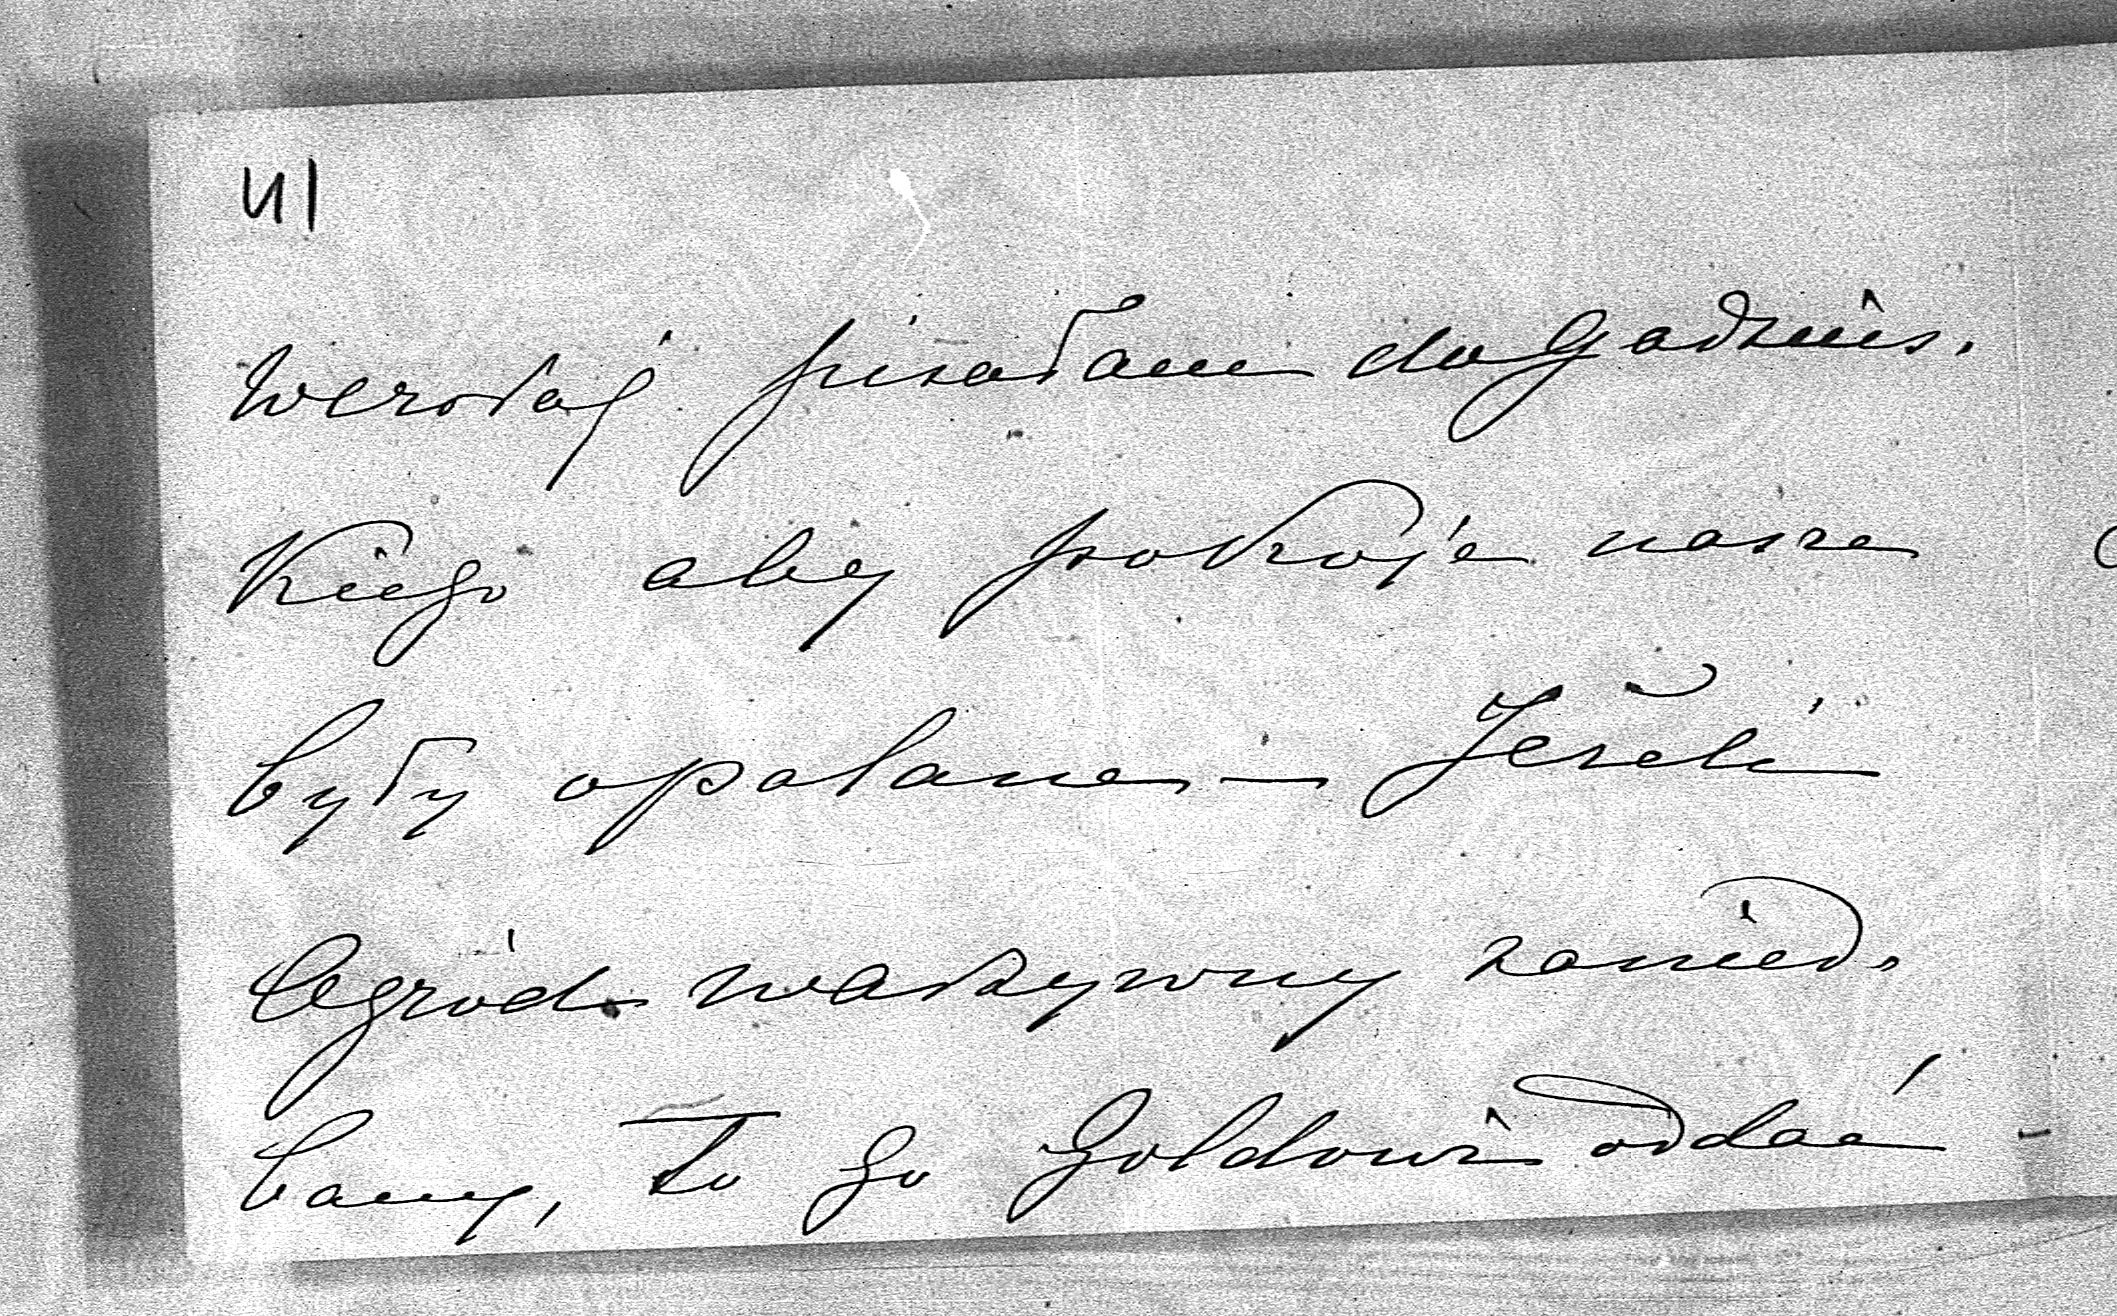 41
Wczoraj pisałam do Gadzińs.
kiego aby pokoje nasze
były opalane — Jeżeli
Ogród warzywny zanied.
bany, to go Goldowi oddać